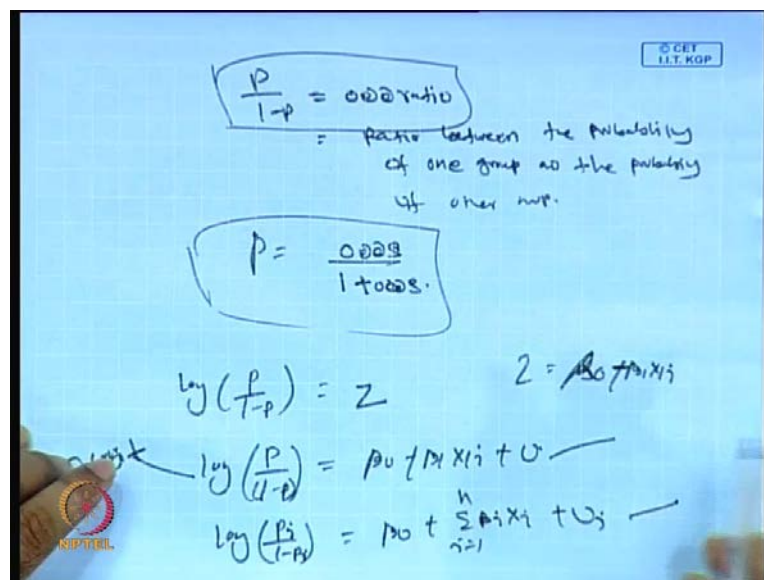 © CET
I.I.T. KGP
P/1-P = odd ratio
= Ratio between the probability
of one group as the probability
of other
P = odds/1+odds.
log(P/1-P) = Z Z = β0+β1X1i
log(P/(1-P)) = β0+β1X1i+U
log(Pi/1-Pi) = β0 + n Σ i=1 βiXi + Ui
NPTEL